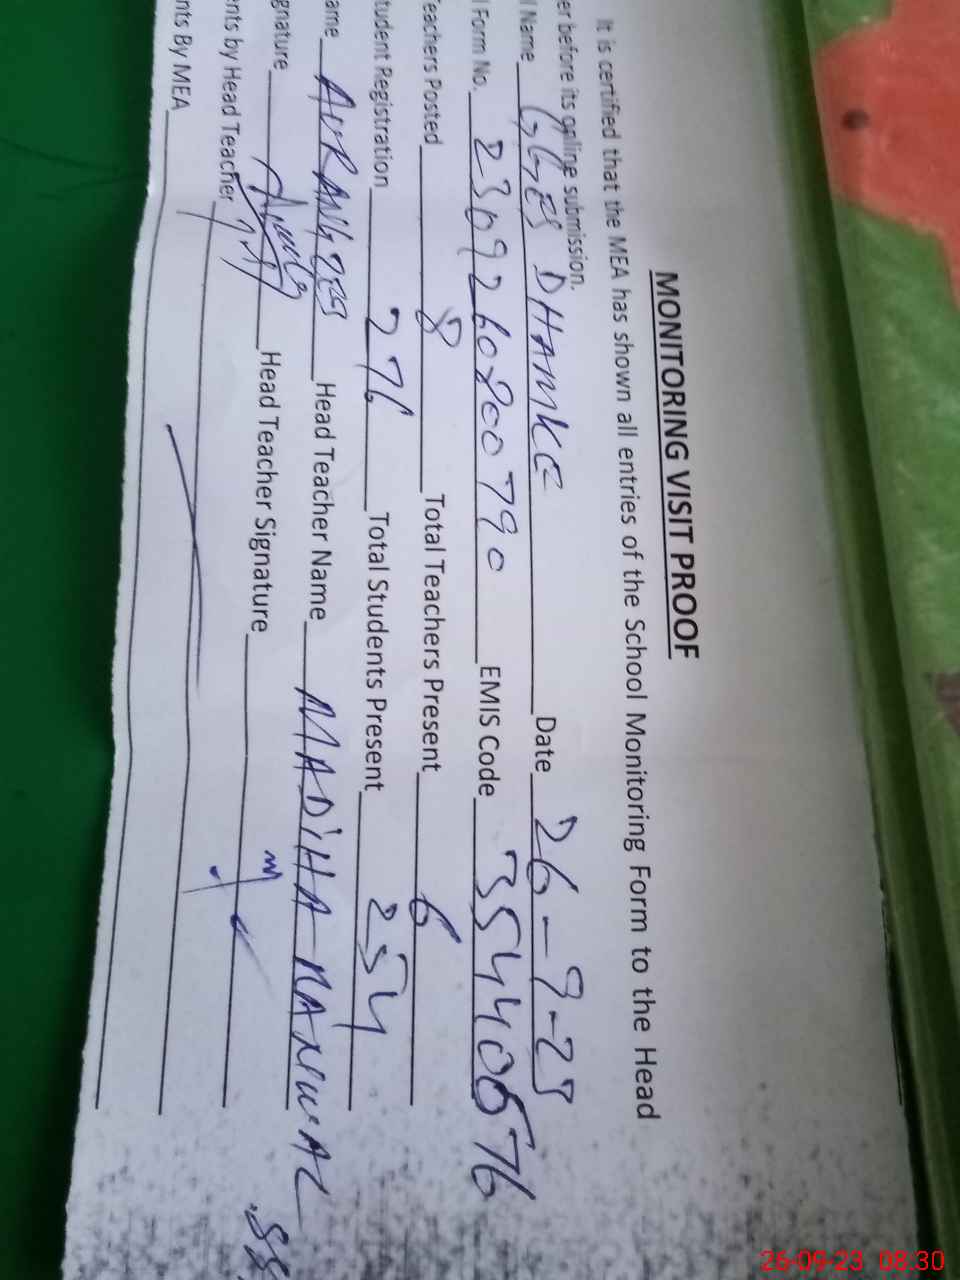 MONITORING VISIT PROOF
It is certified that the MEA has shown all entries of the School Monitoring Form to the Head
er before its online submission.
l Name GGES DHAMKE Date 26-9-23
l Form No. 2309260800790 EMIS Code 35440676
eachers Posted 8 Total Teachers Present 6
tudent Registration 276 Total Students Present 254
ame AURANGZEB Head Teacher Name MADIHA
gnature Head Teacher Signature
nts by Head Teacher
nts By MEA
26-09-23 08:30